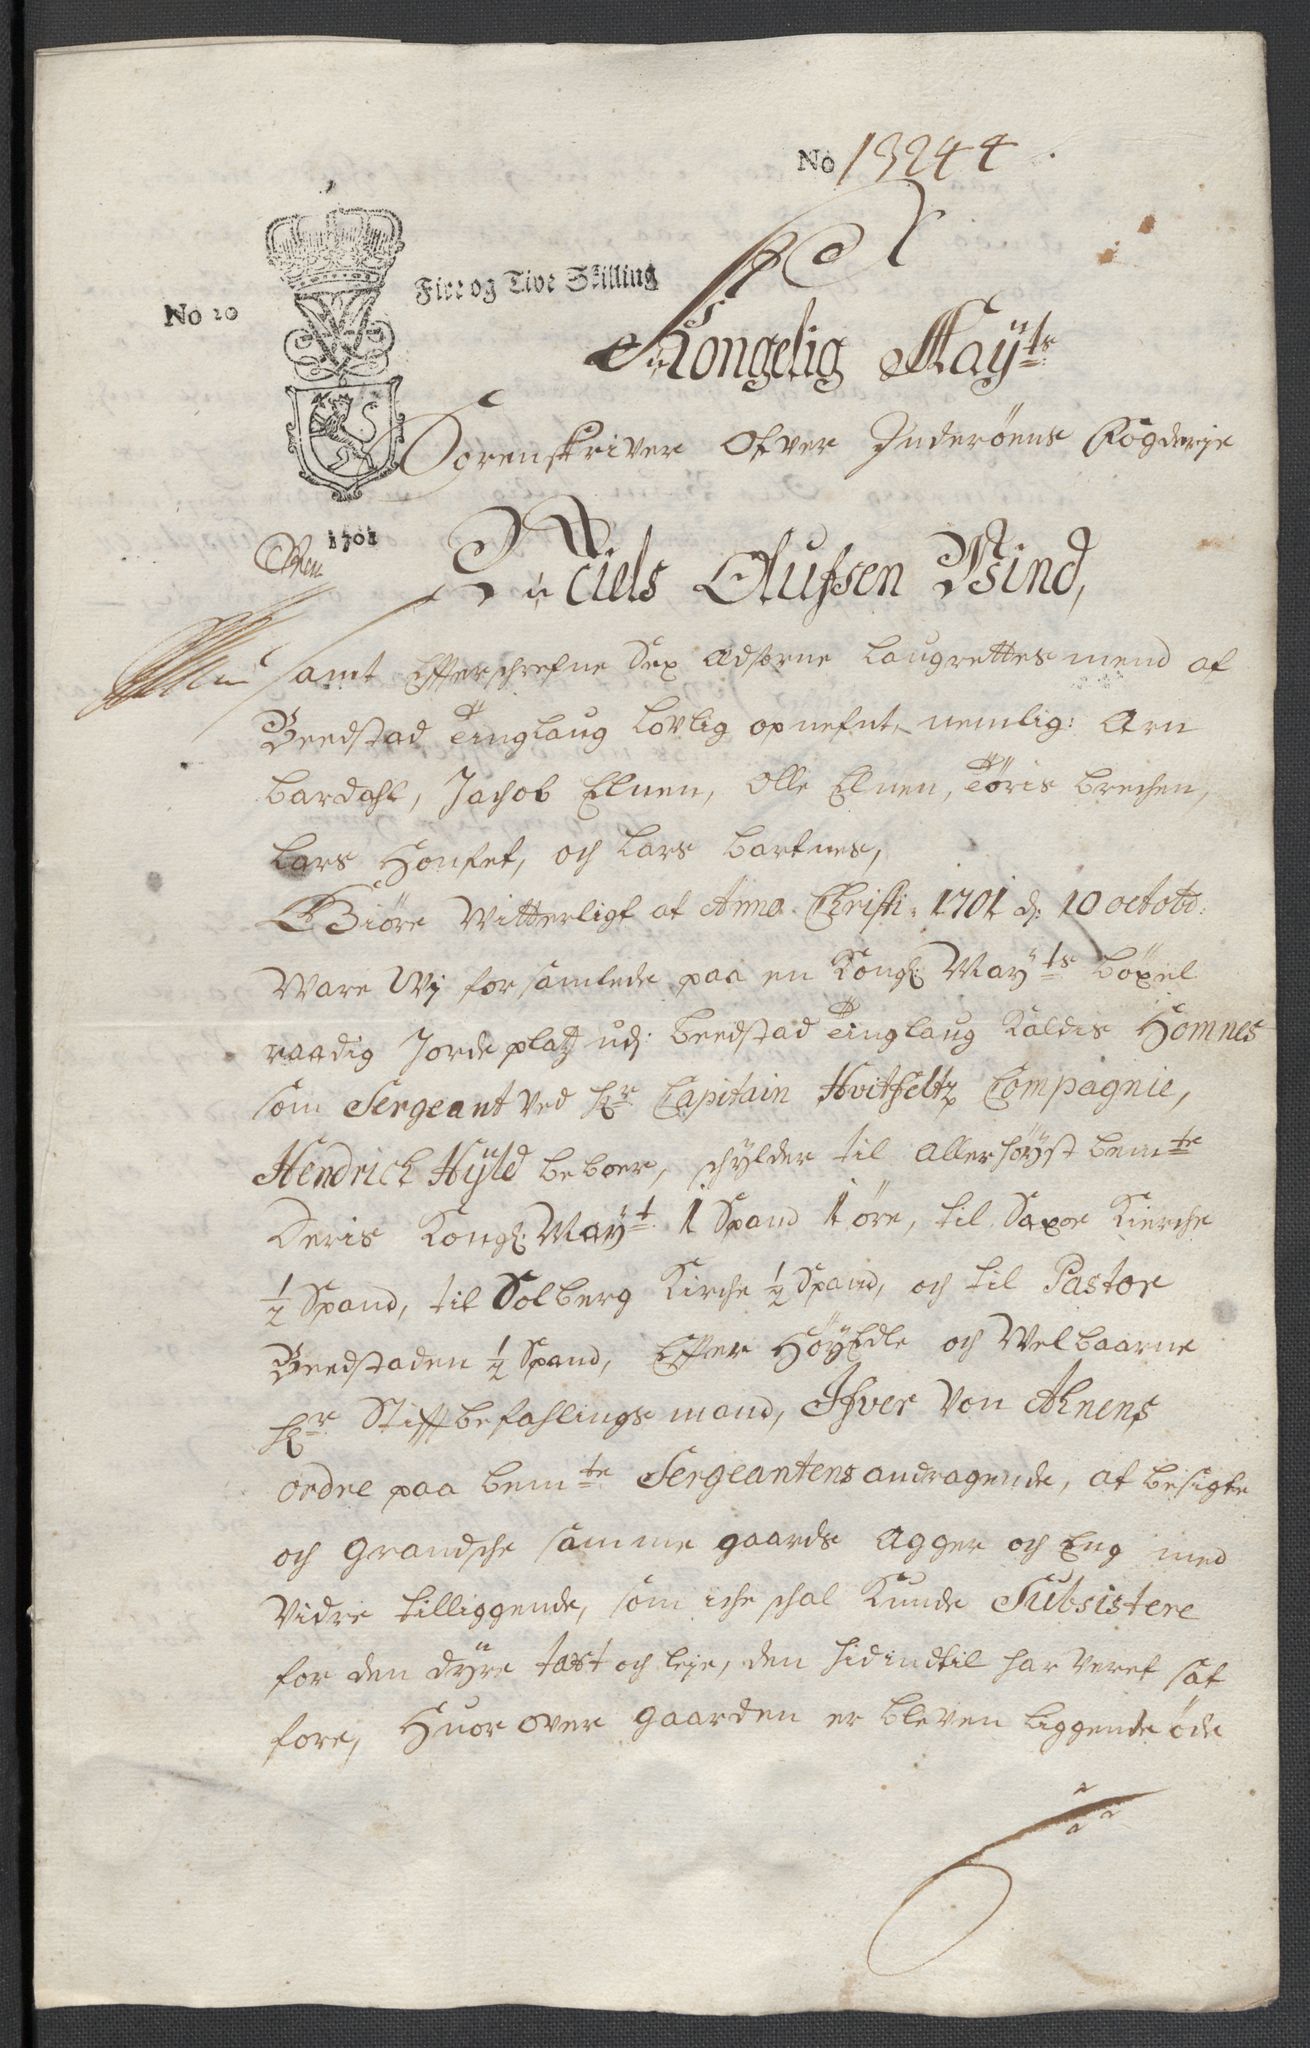 No 13244
No 20
Fire og Tive Skilling
1701
Kongelig Mayts
Sorenskriver Ofver Inderöens Fögderje
Niels Olufsen Wind,
samt Efterschrefne Sex Adsorne Laugrettesmend af
Beedstad Tinglaug Lovlig opnefnt, nemlig: Arn
Bardahl, Jachob Elnen, Olle Elnen, Töris Brechen,
Lars Honset, och Lars Bartnes,
Giöre Witterligt at Anno Christi 1701 d: 10 octobr:
Ware Wj forsamlede paa en Kongl: Mayts böxel
raadig Jordeplatz udj Beedstad Tinglaug Kaldis Homnes
som Sergeant ved Hr Capitain Hvitfeltz Compagnie,
Hendrich Hyld beboer, schylder til allerhöyst bemte
Deris Kongl: Mayt 1 Spand 1 öre, til Saxor Kierche
1/2 Spand, til Solberg Kirche 1/2 Spand, och til Pastor
Beedstaden 1/2 Spand, Effter HöyEdle och Welbaarne
Hr Stifftbefahlings mand, Ifver Von Ahnens
ordre paa bemte Sergeantens andragende, at besigte
och grandsche samme gaards Agger och Eng med
Vidre tilliggende, som iche schal Kunde Subsistere
for den dyre taxt och leje, den hidindtil har veret sat
fore, Huor over gaarden er bleven liggende öde